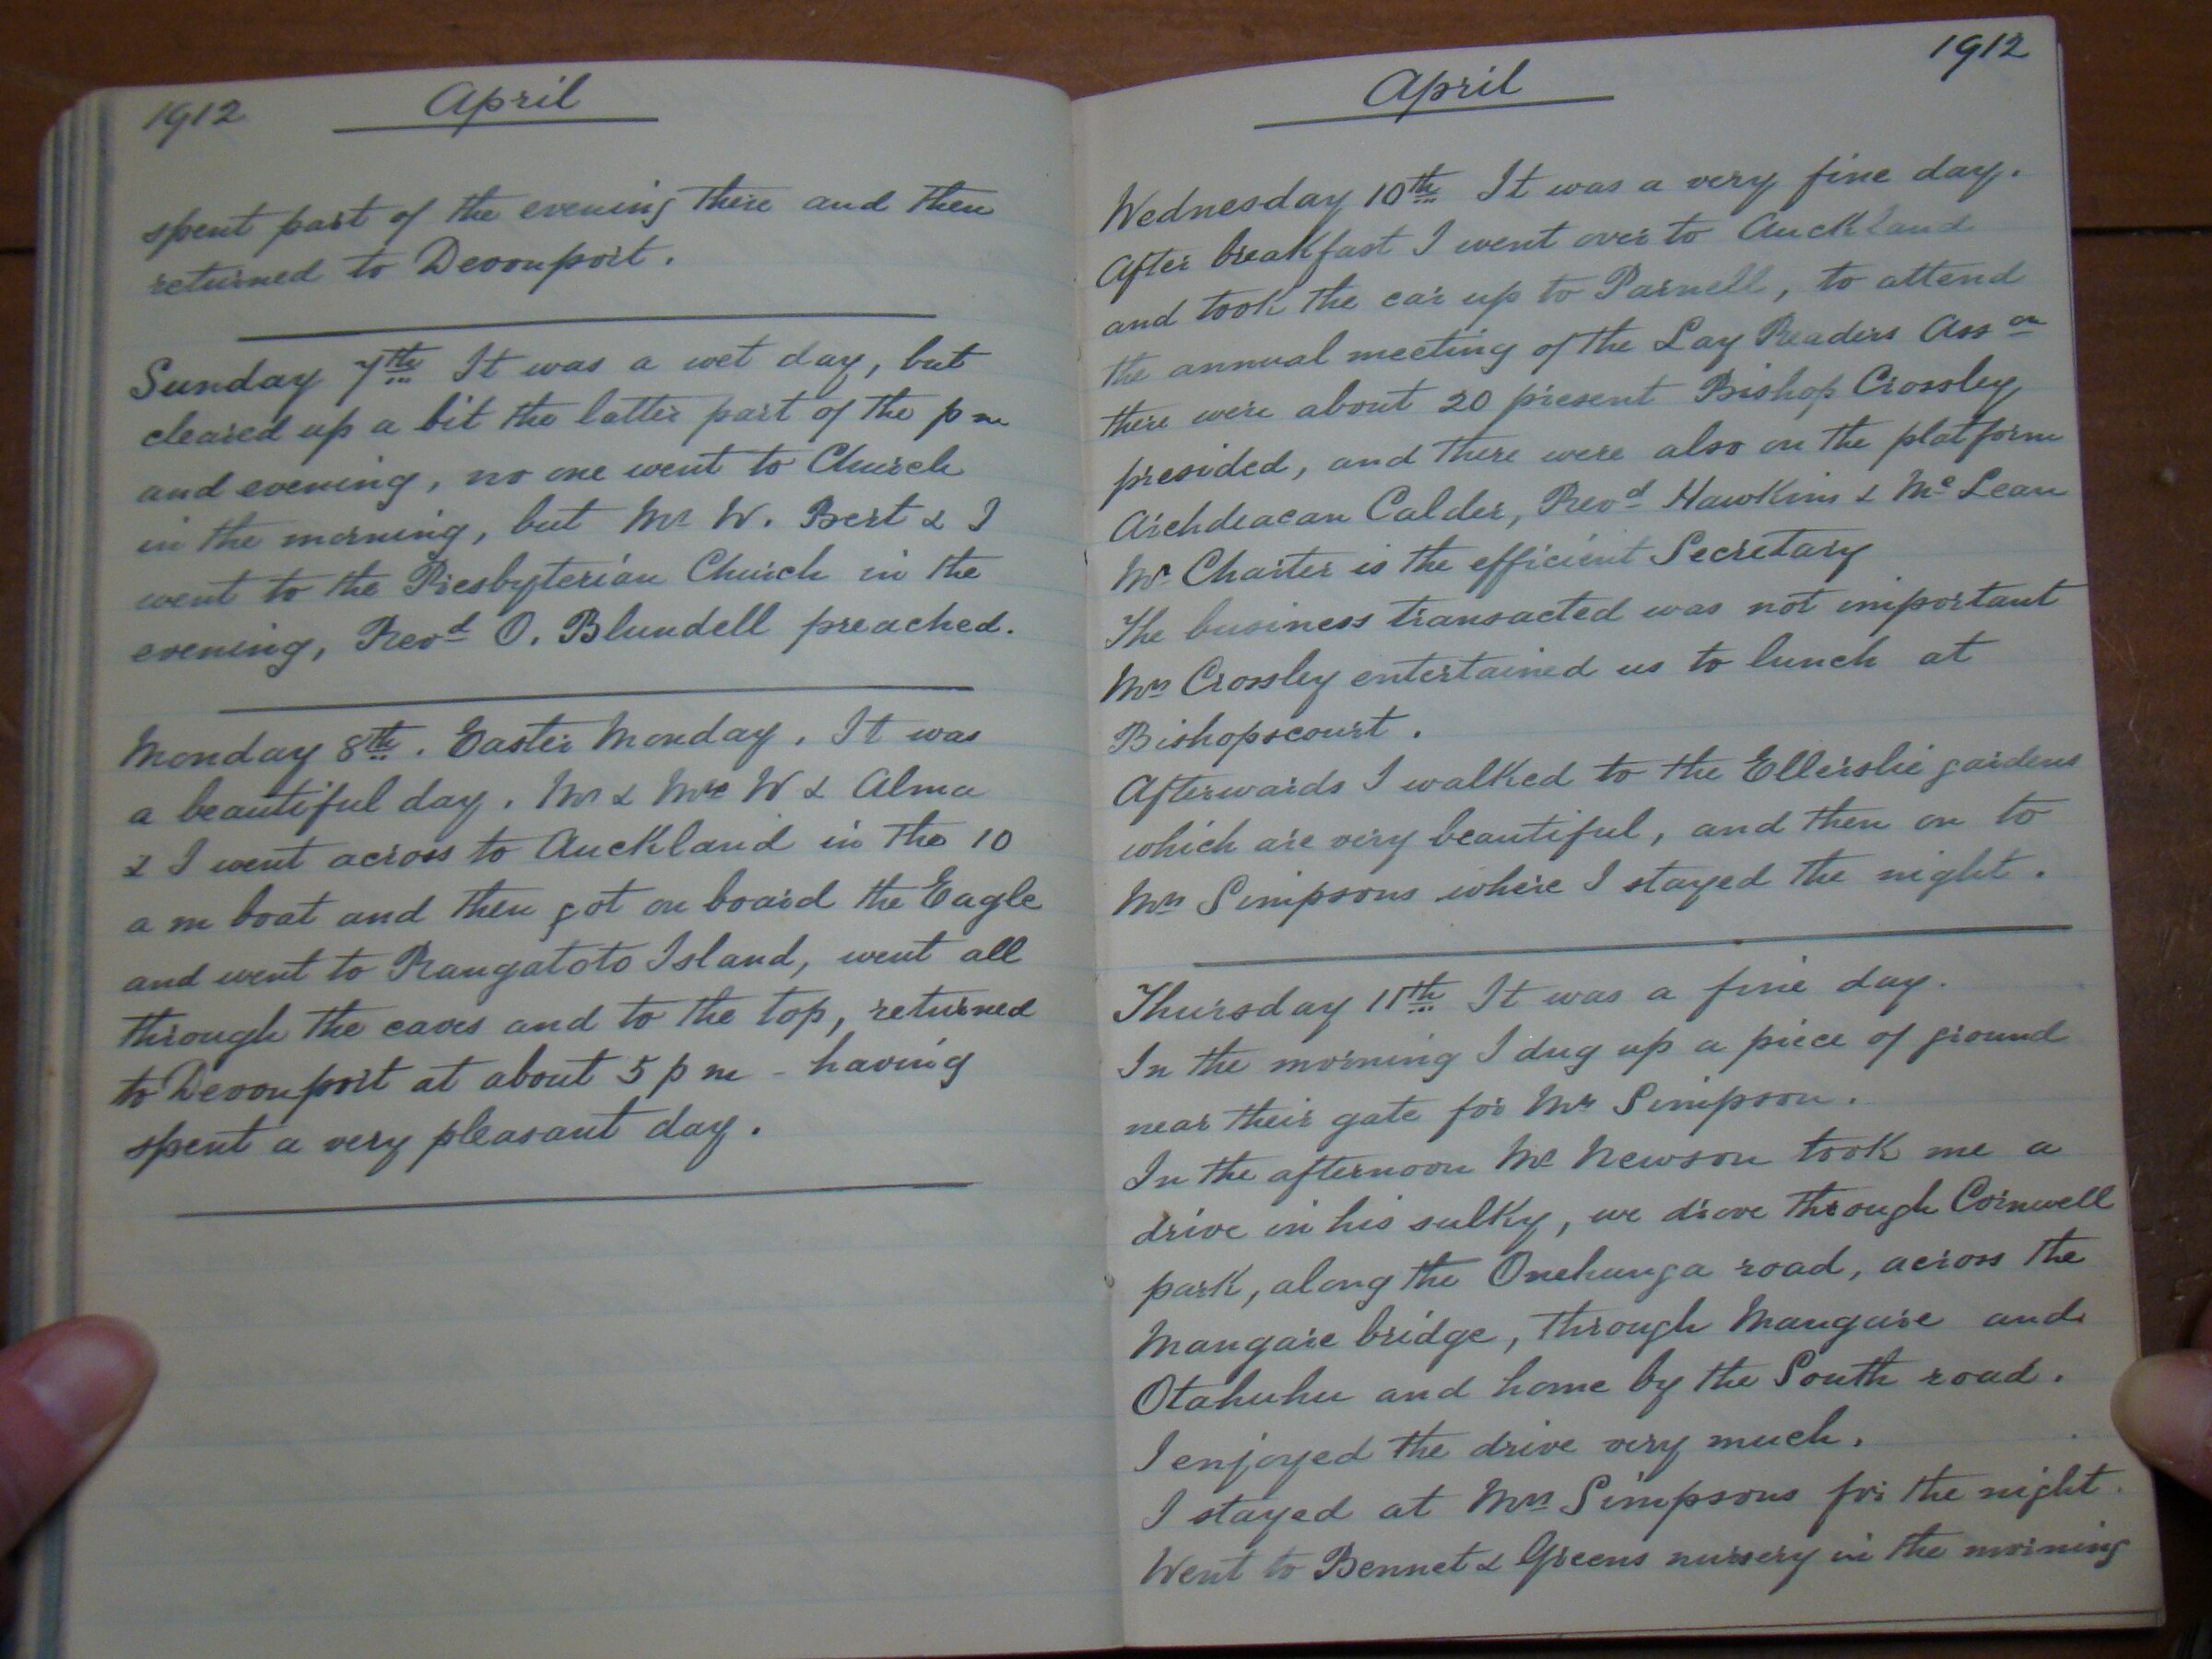 1912 April
spent part of the evening there and then
returned to Devonport.
Sunday 7th It was a wet day, but
cleared up a bit the latter part of the p m
and evening, no one went to Church
in the morning, but Mr W. Bert & I
went to the Presbyterian Church in the
evening, Revd O. Blundell preached.
Monday 8th. Easter Monday. It was
a beautiful day. Mr & Mrs W & Alma
& I went across to Auckland in the 10
a m boat and then got on board the Eagle
and went to Rangatoto Island, went all
through the caves and to the top, returned
to Devonport at about 5 p m - having
spent a very pleasant day.
April 1912
Wednesday 10th It was a very fine day.
After breakfast I went over to Auckland
and took the car up to Parnell, to attend
the annual meeting of the Lay Readers Asson
there were about 20 present Bishop Crossley
presided, and there were also on the platform
Archdeacan Calder, Revd Hawkins & Mc Lean
Mr Charter is the efficient Secretary
The business transacted was not important
Mrs Crossley entertained us to lunch at
Bishopscourt.
Afterwards I walked to the Ellerslie gardens
which are very beautiful, and then on to
Mrs Simpsons where I stayed the night.
Thursday 11th It was a fine day.
In the morning I dug up a piece of ground
near their gate for Mr Simpson.
In the afternoon Mr Newson took me a
drive in his sulky, we drove through Cornwell
park, along the Onehunga road, across the
Mangare bridge, through Mangare and
Otahuhu and home by the South road.
I enjoyed the drive very much.
I stayed at Mrs Simpsons for the night.
Went to Bennet & Greens nursery in the morning